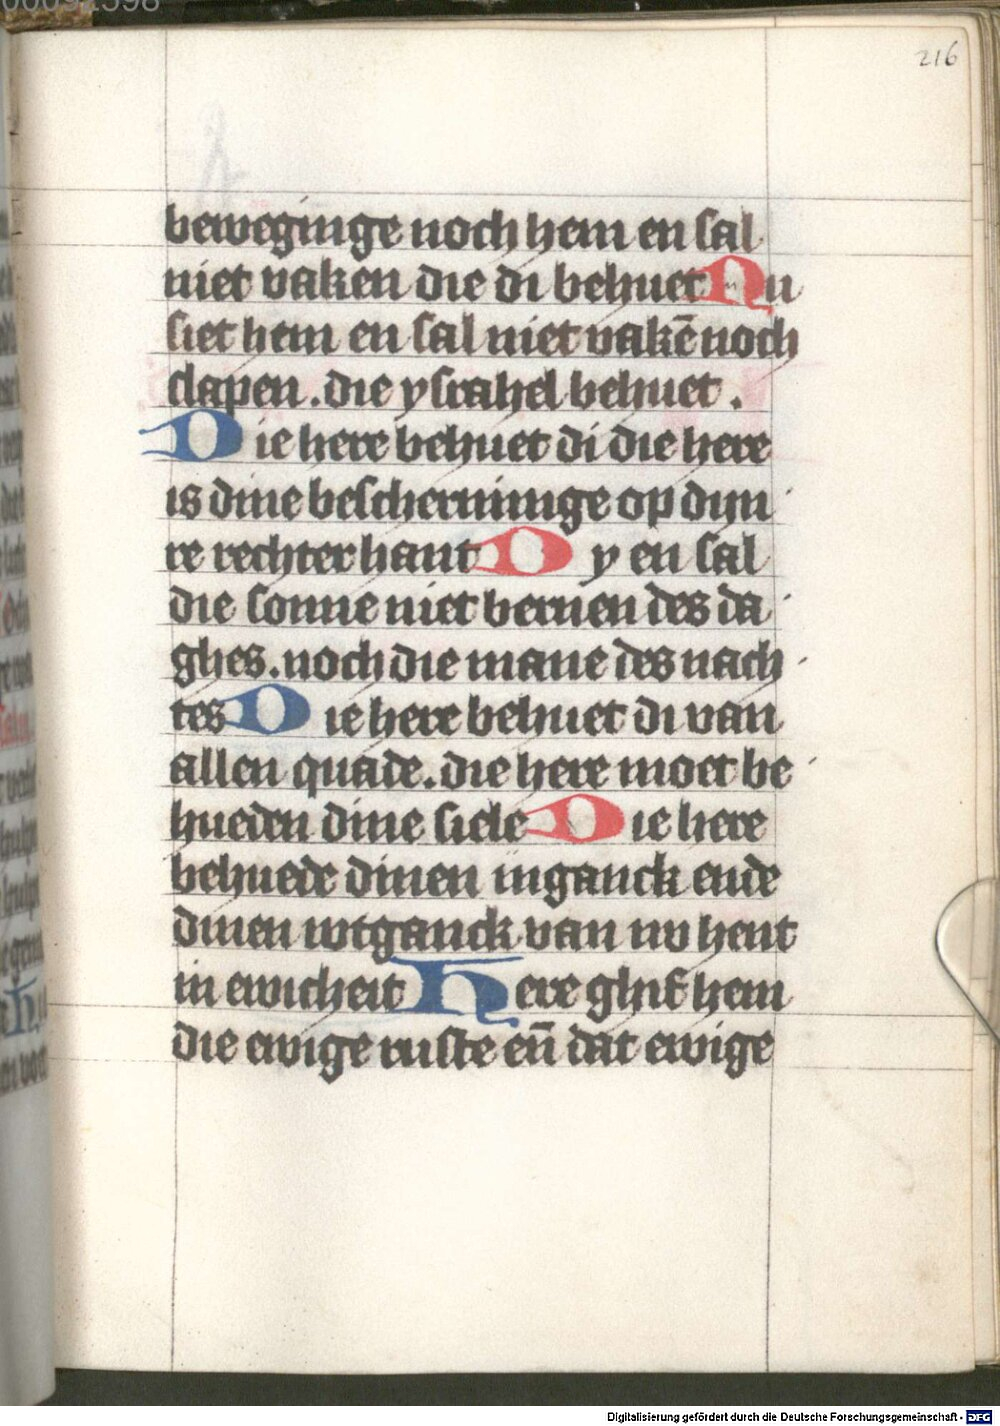 216
beweginge noch hem en sal
niet vaken die di behuet Nu
siet hem en sal niet vakē noch
slapen . die ysrahel behuet .
Die here behuet di die here
is dine bescherminge op dyn
re rechter hant Dy en sal
die sonne niet bernen des da
ghes . noch die mane des nach
tes Die here behuet di van
allen quade . die here moet be
hueden dine siele Die here
behuede dinen inganck ende
dinen wtganck van nv hent
in ewicheit Here ghif hem
die ewige ruste eñ dat ewige
Digitalisierung gefördert durch die Deutsche Forschungsgemeinschaft - DFG